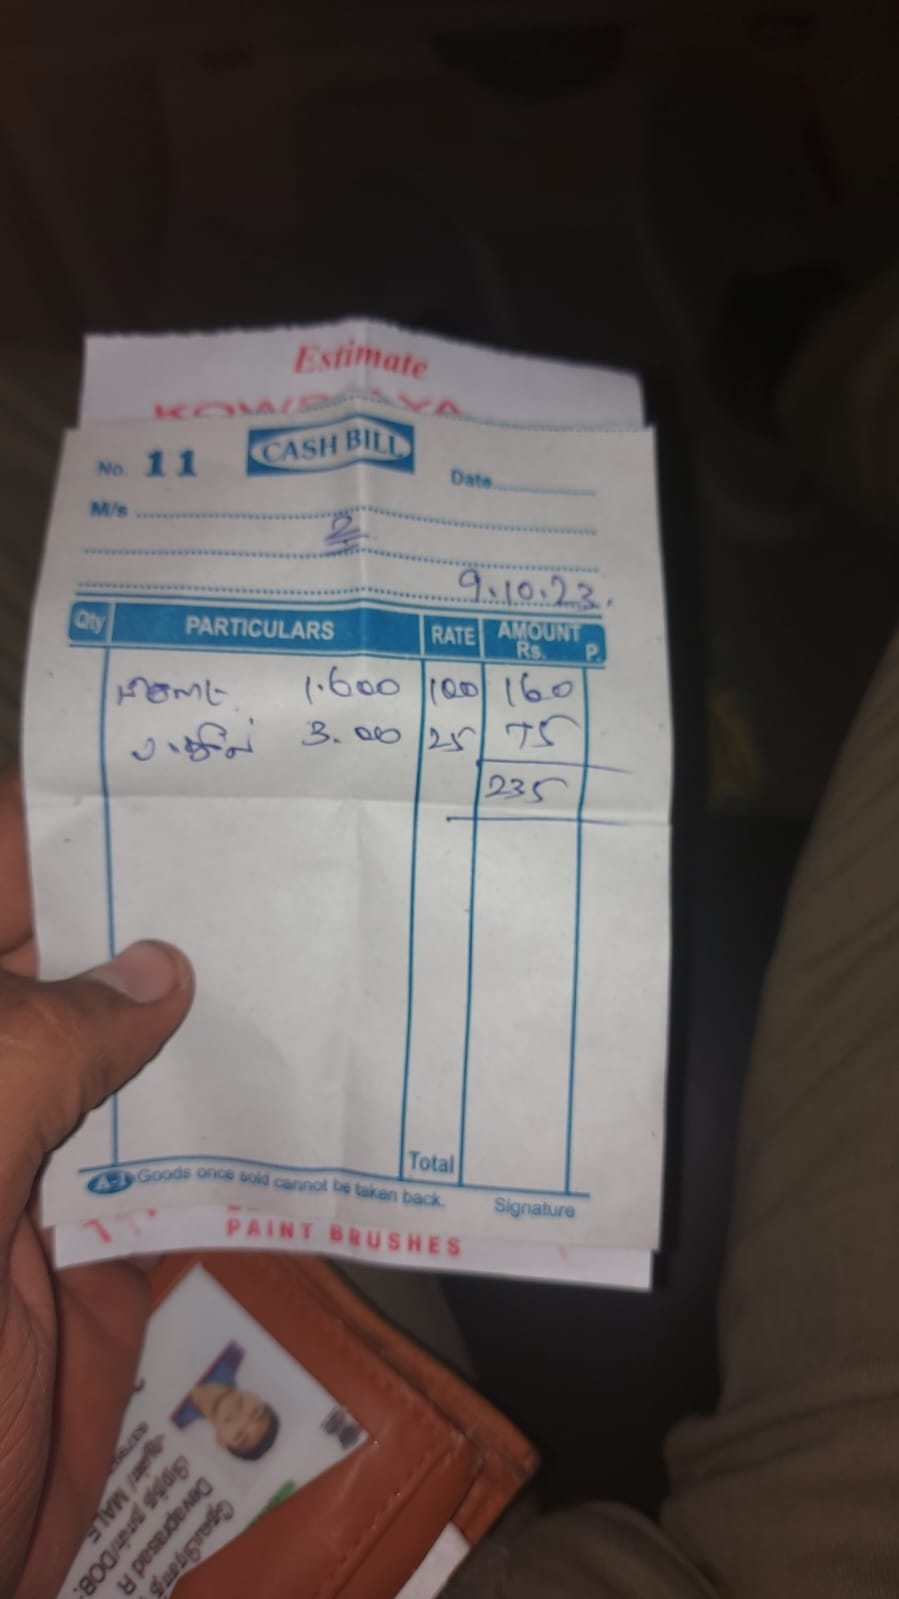 Estimate
CASH BILL
No. 11
Date
M/s
2
9.10.23.
Qty PARTICULARS RATE AMOUNT Rs. P.
1.600 100 160
3.00 25 75
235
Total
A-1 Goods once sold cannot be taken back.
Signature
PAINT BRUSHES
Devaprasad R
/DOB:
/ MALE